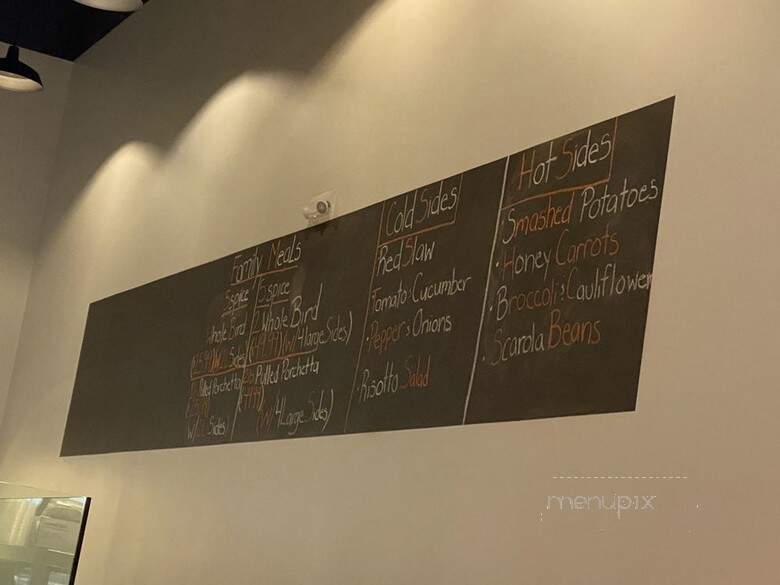 Family Meals
5 spice
Whole Bird
Sides
Pulled Porchetta
Sides)
5 spice
2 Whole Bird
W/ 4 large Sides)
Pulled Porchetta
(W/ 4 Large Sides)
Cold Sides
Red Slaw
Tomato & Cucumber
Peppers & Onions
Risotto Salad
Hot Sides
Smashed Potatoes
Honey Carrots
Broccoli & Cauliflower
Scarola Beans
menupix